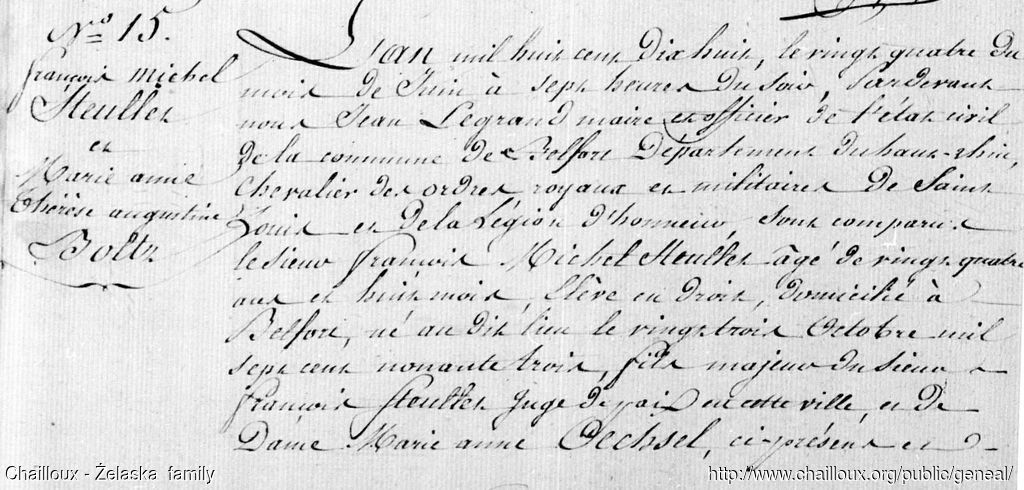 N.º 15.
françois michel
Steullet
et
Marie anne
Thérèse augustine
Boltz
L'an mil huit cent Dix huit, le vingt quatre du
mois de Juin à sept heures du soir, Pardevant
nous Jean Legrand maire et officier de l'état civil
de la commune de Belfort Département du haut-rhin,
Chevalier des ordres royaux et militaires de Saint
Louis et de la Légion d'honneur, sont comparus
le sieur françois Michel Steullet agé de vingt quatre
ans et huit mois, Elève en droit, domicilié à
Belfort, né au dit lieu le vingt trois Octobre mil
sept cent nonante trois, fils majeur du sieur
françois Steullet Juge de paix en cette ville, et de
Dame Marie anne Oechsel, ci-présens et d-
Chailloux - Želaska family
http://www.chailloux.org/public/geneal/